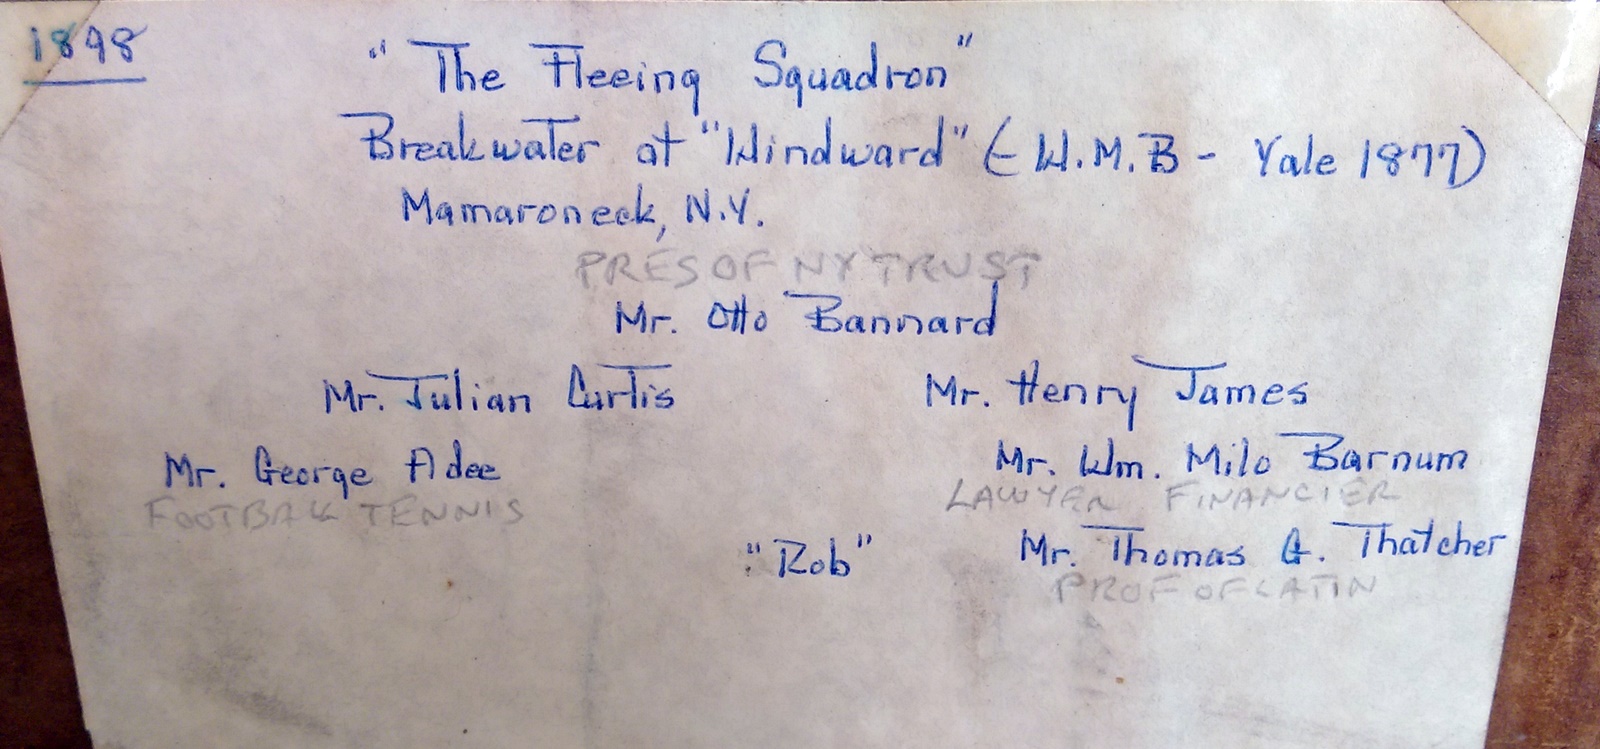 1898
"The Fleeing Squadron"
Breakwater at "Windward" (- W.M.B - Yale 1877)
Mamaroneck, N.Y.
PRES OF NY TRUST
Mr. Otto Bannard
Mr. Julian Curtis Mr. Henry James
Mr. George Adee Mr. Wm. Milo Barnum
FOOTBALL TENNIS LAWYER FINANCIER
"Rob" Mr. Thomas G. Thatcher
PROF OF LATIN